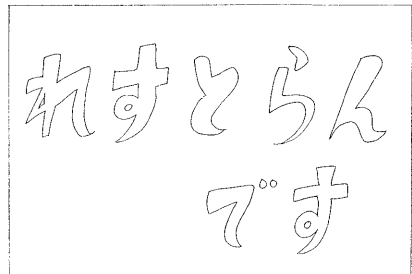 れすとらん
です